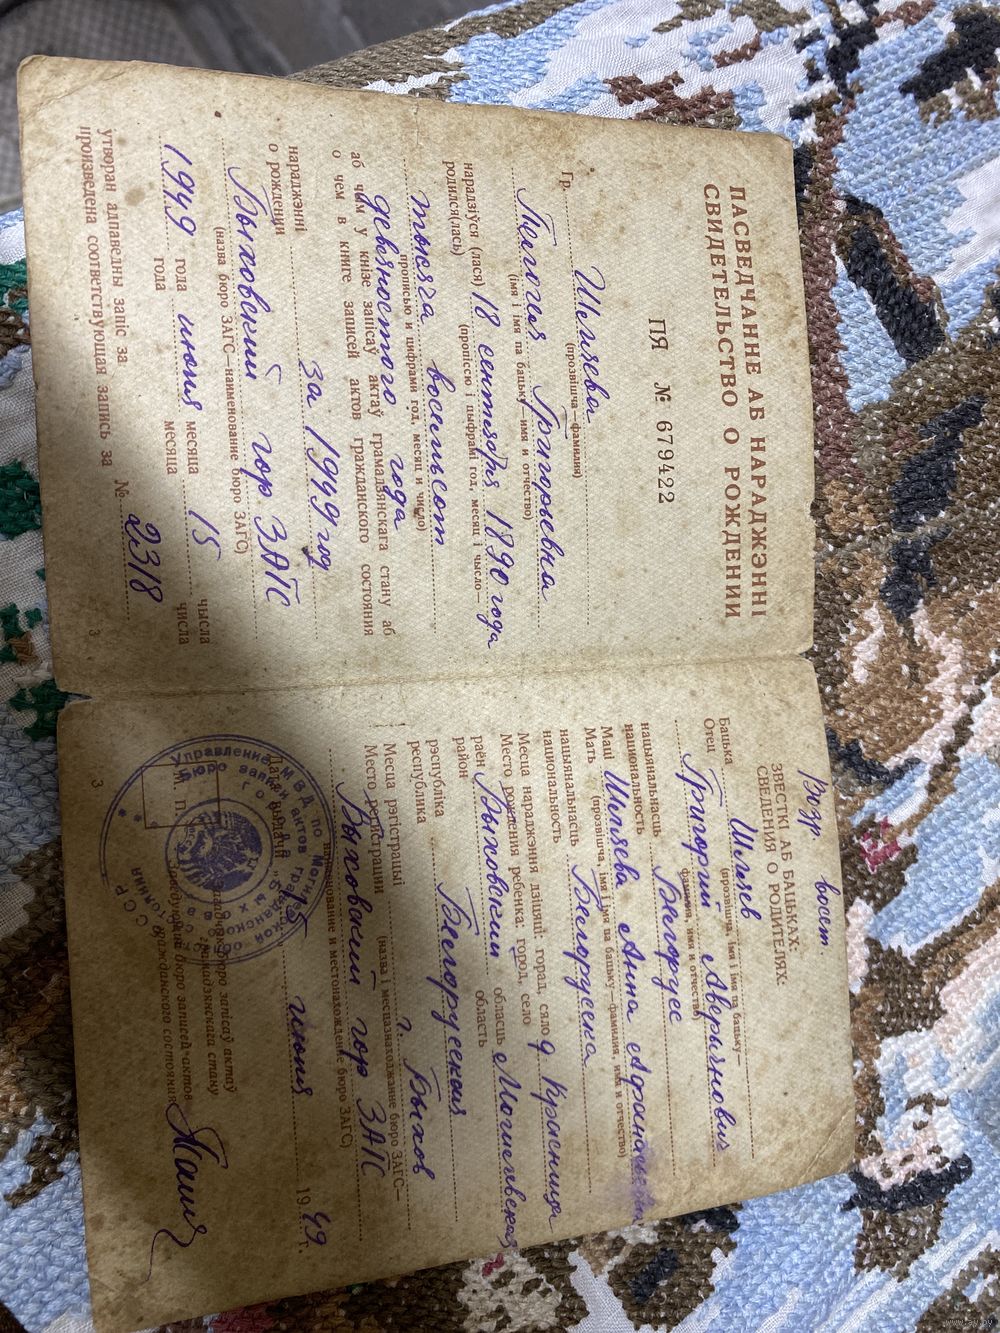 ПАСВЕДЧАННЕ АБ НАРАДЖЭННІ
СВИДЕТЕЛЬСТВО О РОЖДЕНИИ
ПЯ № 679422
Гр. Шиляева
(прозвішча—фамилия)
Пелогея Григорьевна
(імя і імя па бацьку—имя и отчество)
нарадзіўся (лася)
родился(лась)
18 сентября 1890 года
(пропіссю і цыфрамі год, месяц і чысло—
тысяча восемьсот
прописью и цифрами год, месяц и число)
девяностого года
аб чым у кнізе запісаў актаў грамадзянскага стану аб
о чем в книге записей актов гражданского состояния
нараджэнні
о рождении
за 1949 год
Быховский гор ЗАГС
(назва бюро ЗАГС—наименование бюро ЗАГС)
1949 года июня месяца 15 чысла
года месяца числа
утворан адпаведны запіс за
произведена соответствующая запись за
№ 2318
3
восст.
ЗВЕСТКІ АБ БАЦЬКАХ:
СВЕДЕНИЯ О РОДИТЕЛЯХ:
Бацька
Отец
Шиляев
(прозвішча, імя і імя па бацьку—
Григорий Аверьянович
фамилия, имя и отчество)
нацыянальнасць
национальность
Белорус
Маці
Мать
Шиляева Анна
(прозвішча, імя і імя па бацьку—фамилия, имя и отчество)
нацыянальнасць
национальность
Белоруска
Месца нараджэння дзіцяці, горад, сяло
Место рождения ребенка: город, село
д Красница
раён
район
Быховский
обласць
область
Могилевская
рэспубліка
республика
Белорусская
Месца рэгістрацыі
Место регистрации
г. Быхов
(назва і месцазнаходжанне бюро ЗАГС—
Быховский гор ЗАГС
наименование и местонахождение бюро ЗАГС)
Дата выдачи "15" июня 1949 г.
М. П.
Загадчык бюро запісаў актаў
грамадзянскага стану
Заведующий бюро записей актов
гражданского состояния
Управление МВД по Могилевской обл. БССР
Бюро записи актов гражданского состояния
3